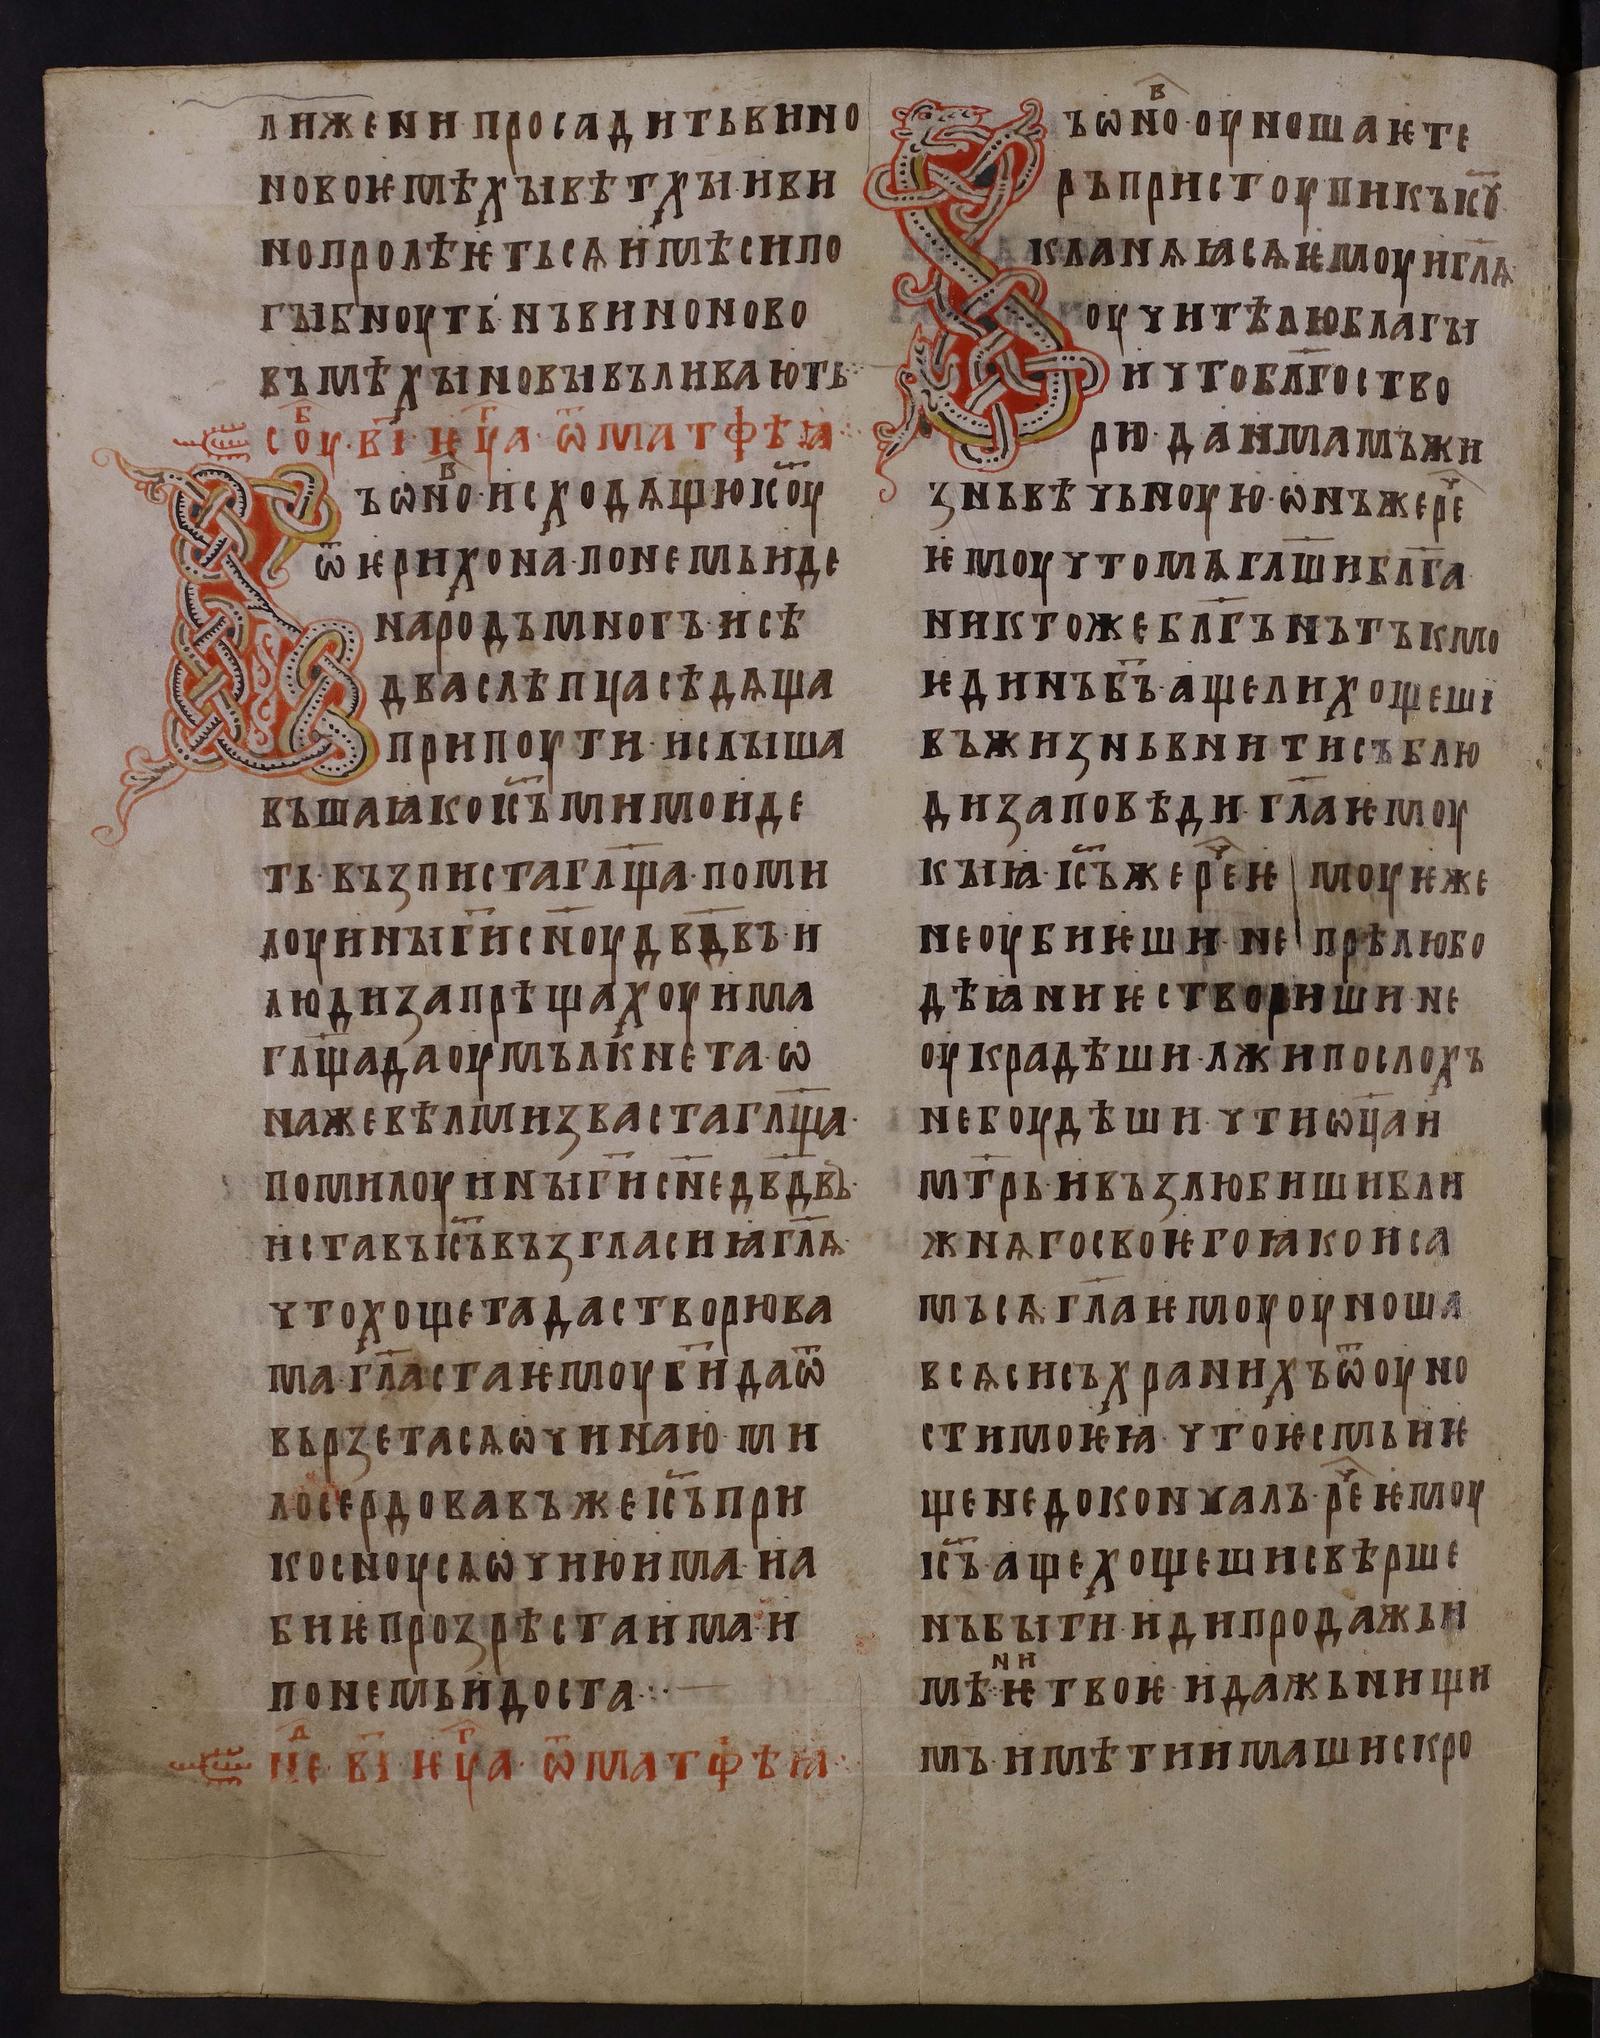 ли же ни просадить вино
новоѥ мѣхы вѣтхы· и ви
но пролѣѥть сѧ и мѣси по
гыбноуть· нъ вино ново
въ мѣхы новы въливають
соу· в҃і· нⷣѣ҃ѥ· ц҃а· ѿ матфѣꙗ
Въ ѡно· исходѧщю іс҃оу
ѿ ѥрихона· по немь иде
народъ многъ· и сѣ
два слѣпца сѣдѧща
при поути· и слыша
въша ꙗко іс҃ъ мимо иде
ть· възписта гл҃ща· поми
лоуи ны г҃и сн҃оу дв҃двъ· и
люди запрѣщахоу има
гл҃ща да оумълкнета· ѡ
на же вѣлми зваста гл҃ща·
помилоуи ны г҃и сн҃е дв҃двъ·
и ставъ іс҃ъ възгласи ꙗ гл҃ѧ·
что хощета да створю ва
ма· гл҃аста ѥмоу г҃и да ѿ
вьрзета сѧ ѡчи наю· ми
лосердовавъ же іс҃ъ при
косноу сѧ ѡчию има· на
биѥ прозрѣста има· и
по немь идоста·
не҃· в҃і· ѥц҃а· ѿ матфѣꙗ
Въ ѡно· оуноша ѥте
ръ пристоупи къ іс҃у
кланѧꙗ сѧ ѥмоу и гл҃ѧ
оучитѣлю благы
и что бл҃го ство
рю· да имамъ жи
знь вѣчьноую· ѡнъ же рⷱе
ѥмоу что мѧ гл҃ши бл҃га
никто же бл҃гъ нъ тъкмо
ѥдинъ б҃ъ· аще ли хощеши
въ жизнь внити съблю
ди заповѣди· гл҃а ѥмоу
кыꙗ· іс҃ъ же рⷱе ѥмоу ѥже
не оубиѥши· не прѣлюбо
дѣꙗниѥ створиши· не
оукрадѣши· лжи послоухъ
не боудѣши· чти ѡц҃а и
мт҃рь· и възлюбиши бли
жнѧго своѥго ꙗко и са
мъ сѧ· гл҃а ѥмоу оуноша
всѧ си съхранихъ ѿ оуно
сти моѥꙗ· что ѥсмь иѥ
ще не докончалъ· рⷱе ѥмоу
іс҃ъ· аще хощеши свѣрше
нъ быти· иди продажь и
мѣниѥ твоѥ· и дажь нищи
мъ· имѣти имаши скро